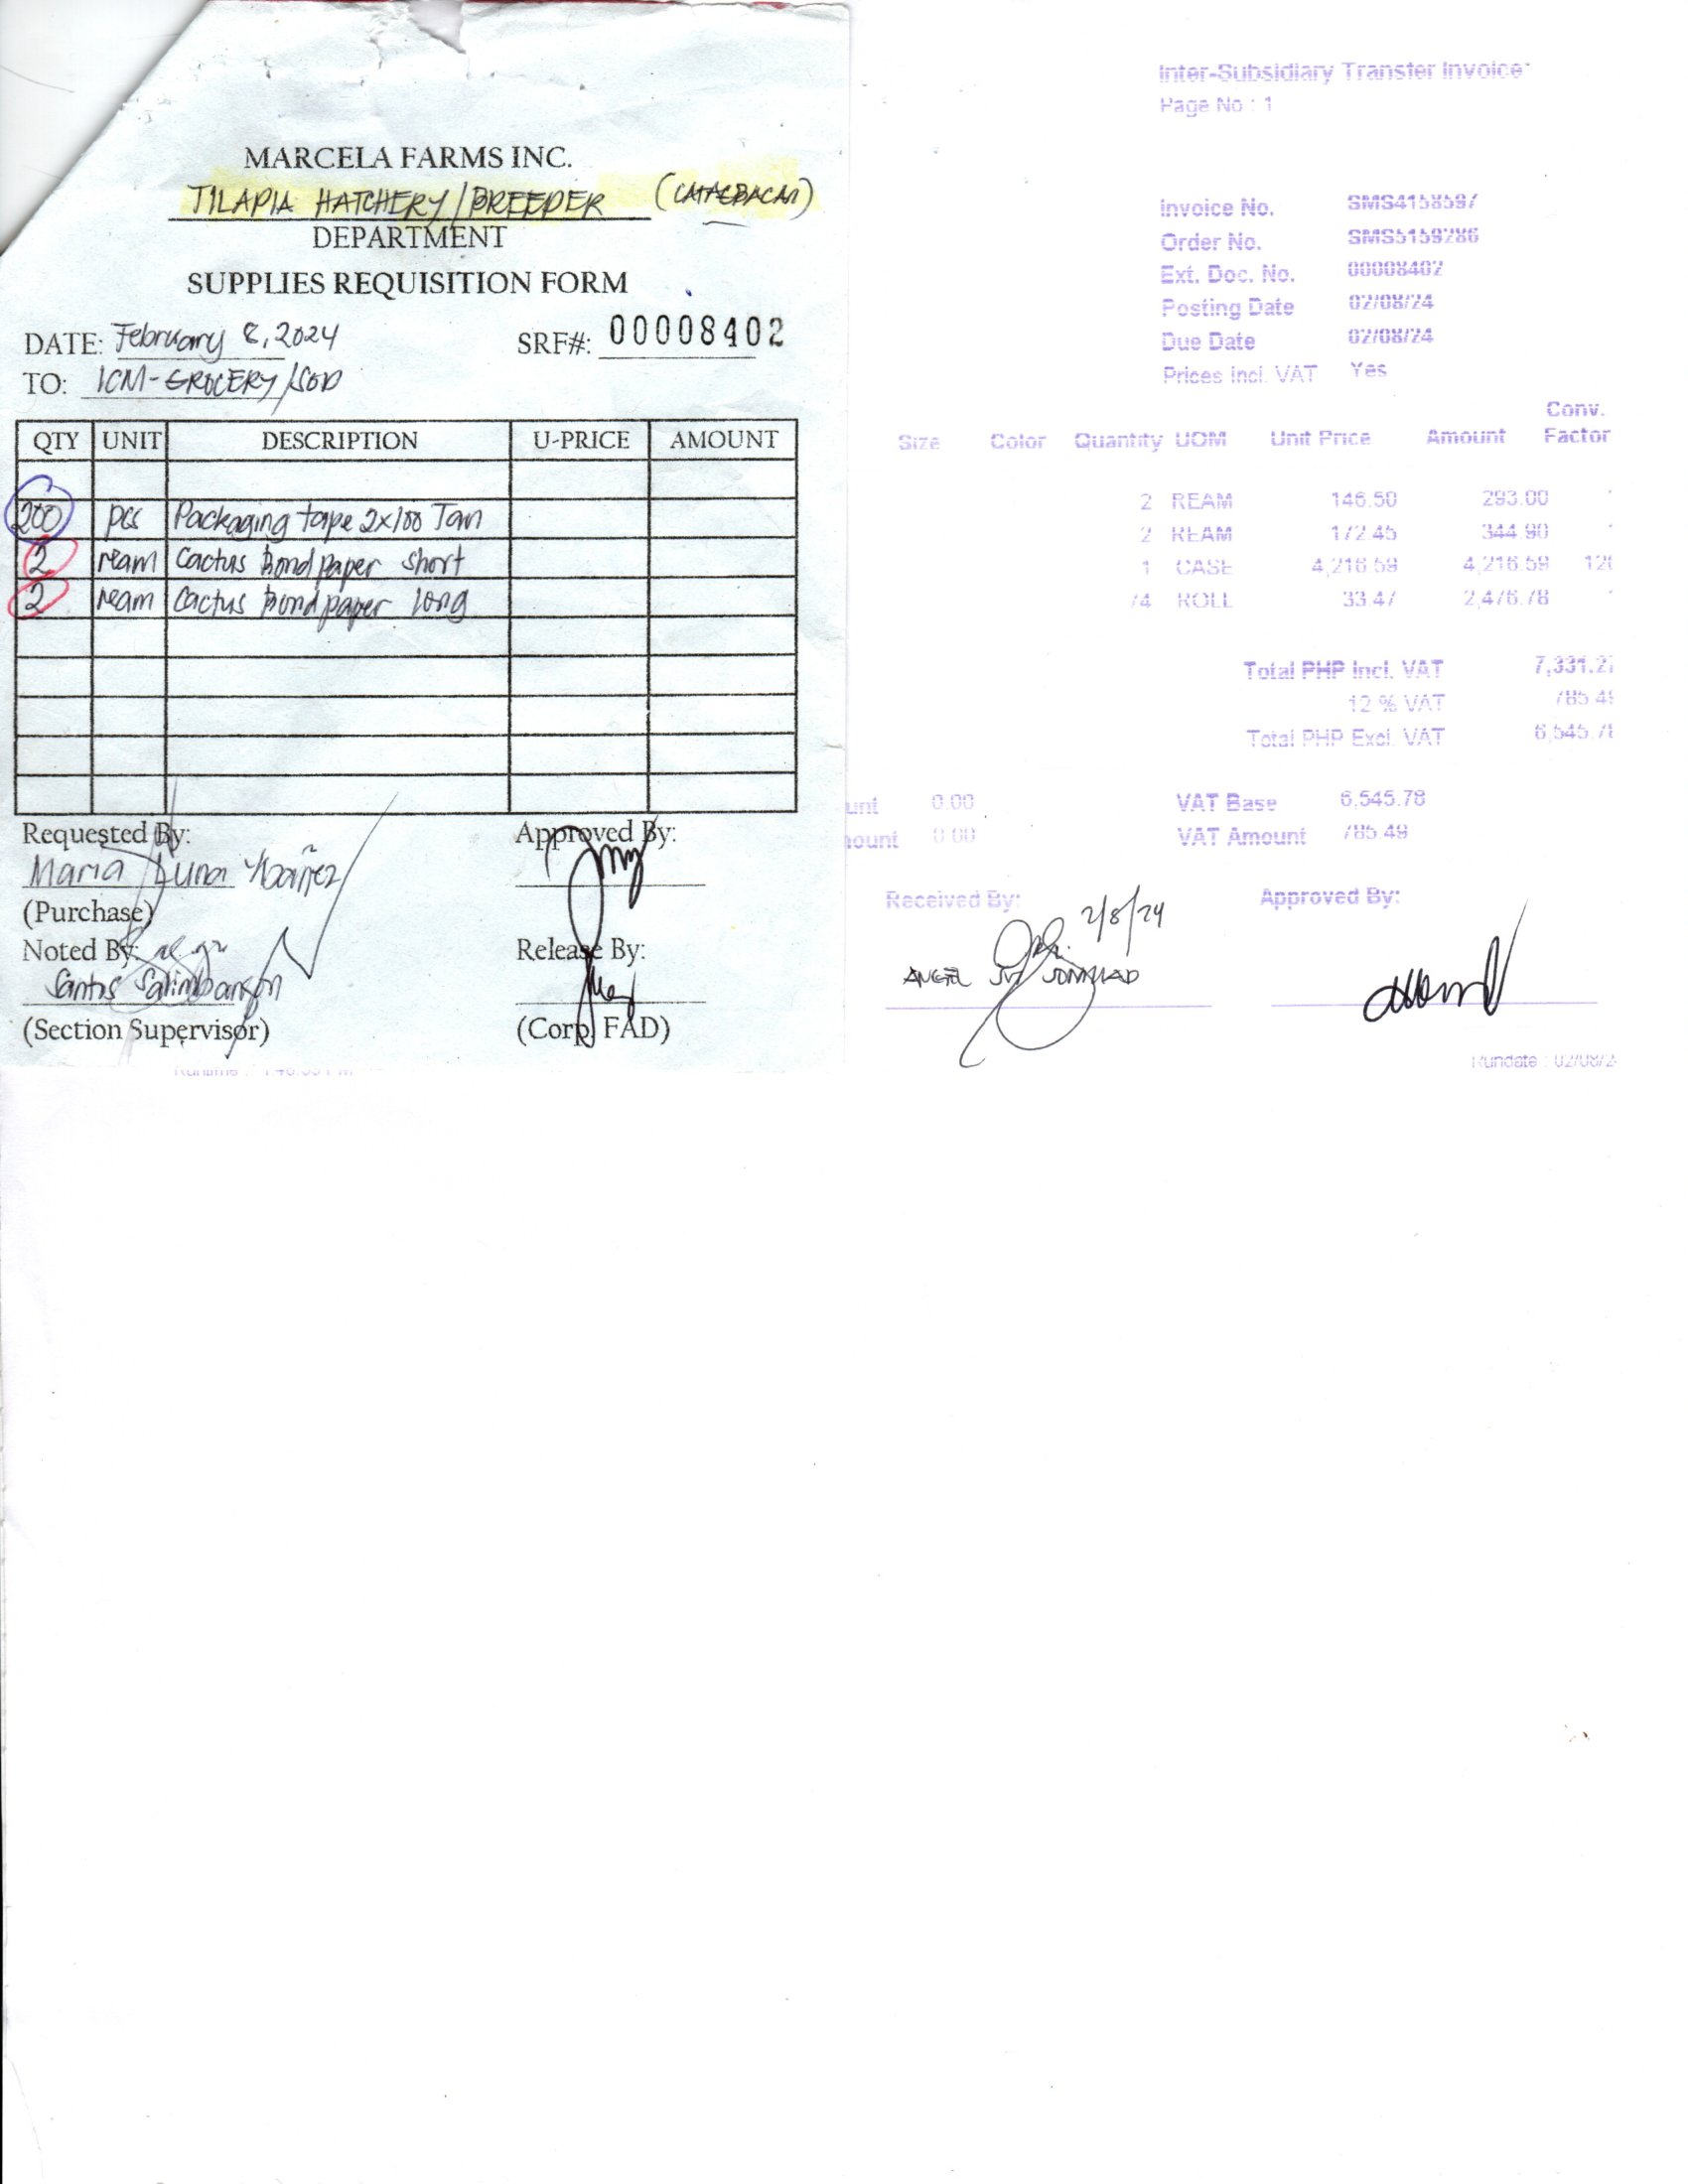 MARCELA FARMS INC.
TILAPIA HATCHERY/BREEDER (CATAGBACAN)
DEPARTMENT
SUPPLIES REQUISITION FORM
DATE: February 8, 2024 SRF#: 00008402
TO: ICM-GROCERY/SOD
QTY UNIT DESCRIPTION U-PRICE AMOUNT
200 pcs Packaging tape 2x100 Tan
2 ream Cactus Bond paper short
2 ream Cactus Bond paper long
Requested By: Approved By:
Maria Luna Ybañez
(Purchase)
Noted By: Release By:
Santos Salimbangon
(Section Supervisor) (Corp. FAD)
Inter-Subsidiary Transfer Invoice
Page No : 1
Invoice No. SMS4158597
Order No. SMS5159286
Ext. Doc. No. 00008402
Posting Date 02/08/24
Due Date 02/08/24
Prices Incl. VAT Yes
Conv.
Size Color Quantity UOM Unit Price Amount Factor
2 REAM 146.50 293.00
2 REAM 172.45 344.90
1 CASE 4,216.59 4,216.59
74 ROLL 33.47 2,476.78
Total PHP Incl. VAT 7,331.27
12 % VAT 785.49
Total PHP Excl. VAT 6,545.78
unt 0.00 VAT Base 6,545.78
ount 0.00 VAT Amount 785.49
Received By: Approved By:
2/8/24
ANGEL
Rundate : 02/08/2